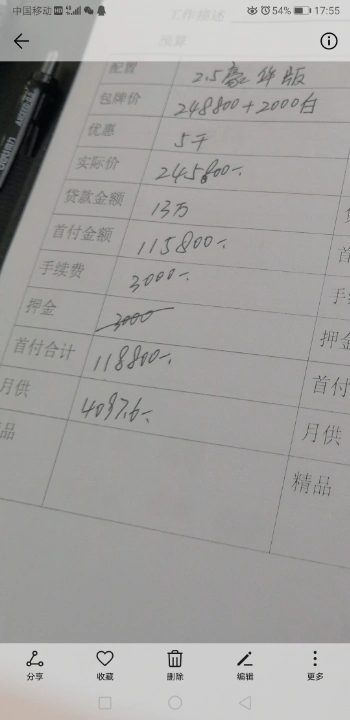 中国移动 HD 54% 17:55
工作描述
预算
配置 2.5豪华版
包牌价 248800+2000白
优惠 5千
实际价 245800-.
贷款金额 13万
首付金额 115800-.
手续费 3000-. 手
押金 3000 押金
首付合计 118800-. 首付
月供 4097.6-. 月供
品 精品
分享 收藏 删除 编辑 更多